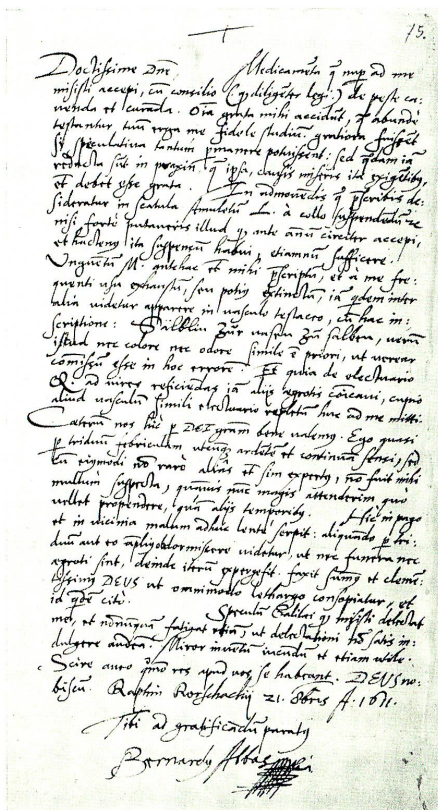 15.
Doctissime Dne, Medicamēta q̄ nup ad me
misisti accepi, cū consilio (qd diligēter legi) de peste ca-
venda et curāda. Oīa grata mihi accidūt, & abundē
testantur, tuū erga me fidele studiū. gratiora fuissēt
si speculativa tantum pmanere potuissent: sed q̄dam iā
redacta sūt in praxin, q̄ ipsa, causis miseris ita exigētib9,
et debet esse grata. In admovēdis q̄ pscribis de-
sideratur in scatula A collo suspendendū &c
nisi fortē putaveris illud, qd ante annū circiter accepi,
et hactenq ita suspensū habui, etiamnū sufficere.
Unguētū M. antehac et mihi pscriptū, et à me fre-
quenti usu exhaustū, seu potiq extinctū, iā qdem inter
talia videtur apparere in vasculo testaceo, cū hac in-
scriptione: Sälblin zur nasen zū salben, verum
istud nec colore nec odore simile ē priori, ut verear
comissū esse in hoc errorē. Et quia de electuario
ad vires reficiēdas iā alijs aegrotis cōicavi, cupio
aliud vasculū simili electuario repletū huc ad me mitti.
Caeterū nos hic p DEI gratiam bene valemq. Ego quasi
p triduū febriculam utcunq ardētē et continuā sensi, sed
cū eiqmodi nō rarò alias et sim expertq, nō fuit mihi
multum suspecta, quamvis nūc magis attenderim quo
vellet propendere, quā alijs temporibq. Hic in pago
et in vicinia malum adhuc lentē serpit: aliquando p tri-
duū aut eo apliq obdormiscere videtur, ut nec funera nec
aegroti sint, demū iterū expergefit, faxit sumq et clemē-
tissimq DEUS ut omnimodo lethargo consopiatur, et
id qdē citò. Speculū Galilei qd misisti delectat
me, et nōnunq fatigat etiā, ut delectationi nō satis in-
dulgere audeā. Miror inventū iucundū et etiam utile.
Scire aveo qūo res apud vos se habeant. DEUS no-
biscū. Raptim Rorschachij 21. 8bris A. 1611.
Tibi ad gratificādū paratq
Bernardq Abbas